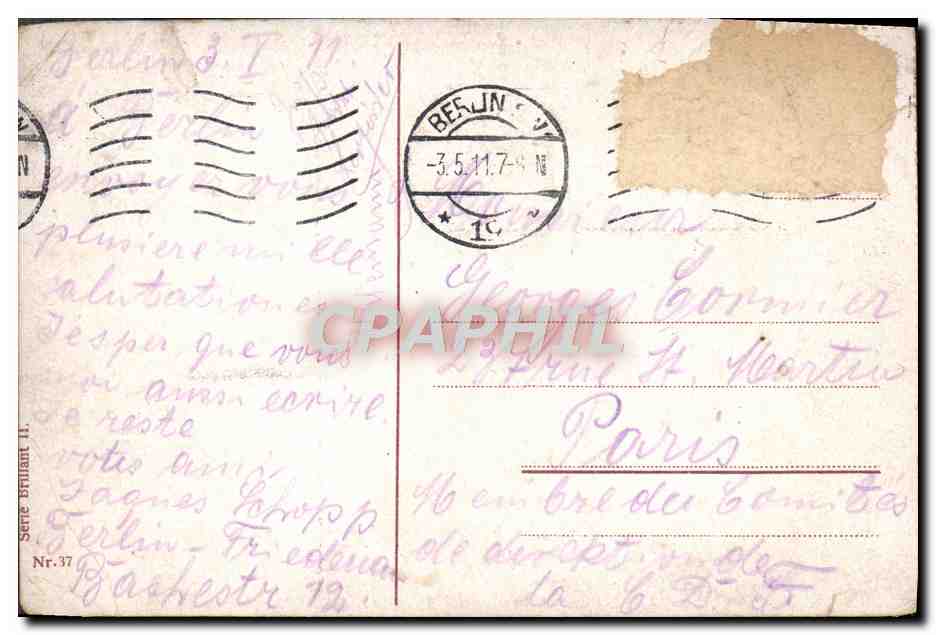 Berlin 3. V. 11.
à Berlin
envoyer vous
plusiere mille
salutationes
J'esper que vous
aussi ecrire.
Je reste
votes ami
Jaques Schopp
Berlin-Friedenau
Bachestr 12.
Serie Brillant II.
Nr. 37
BERLIN
-3.5.11.7-8 N
* 19
Georges Cormier
237 rue St. Martin
Paris
Membre du Comités
de direktion de
la C D F
CPAPHIL